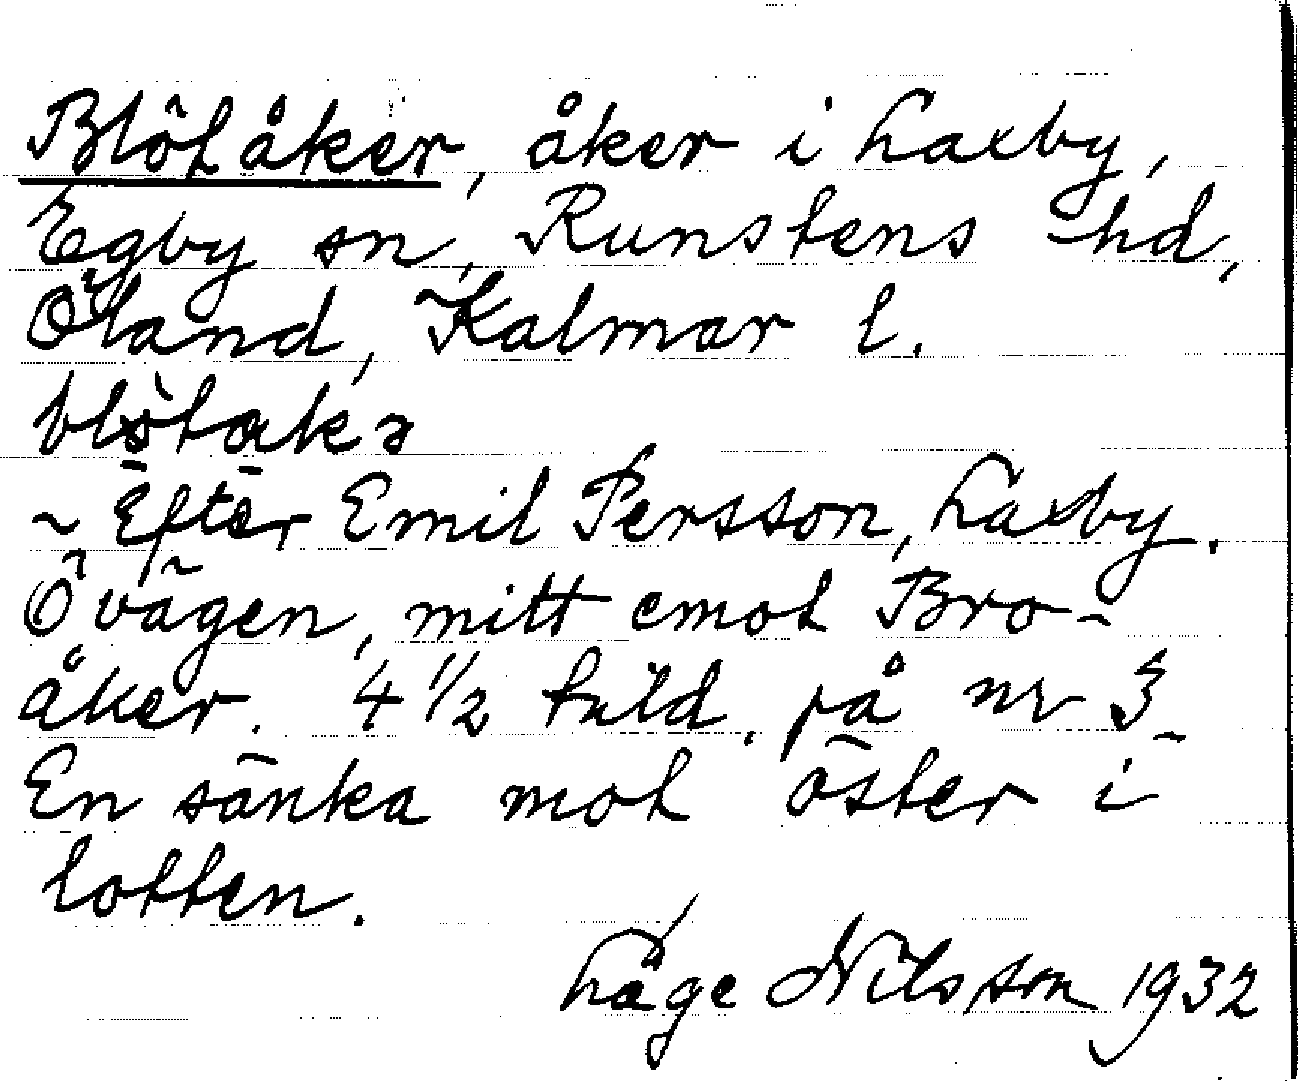 Blötåker, åker i Laxby,
Egby sn, Runstens hd,
Öland, Kalmar l.
blötakɘ
~ Efter Emil Persson, Laxby.
Ö vägen, mitt emot Bro-
åker. 4 1/2 tnld. på nr 3
En sänka mot öster i
lotten.
Låge Nilsson 1932